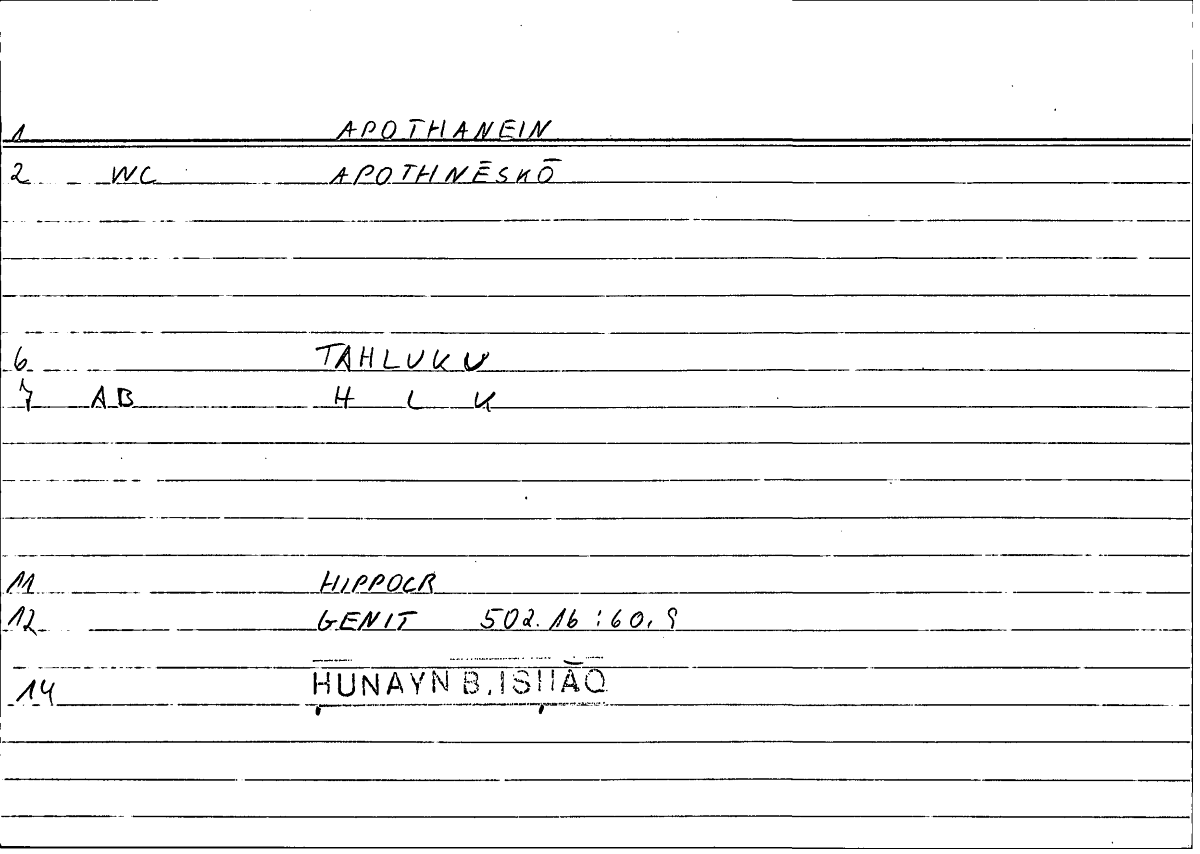 1 APOTHANEIN
2 WC APOTHNĒSKŌ
6 TAHLUKU
7 AB H L K
11 HIPPOCR
12 GENIT 502.16:60,9
14 ḤUNAYN B.ISḤĀQ